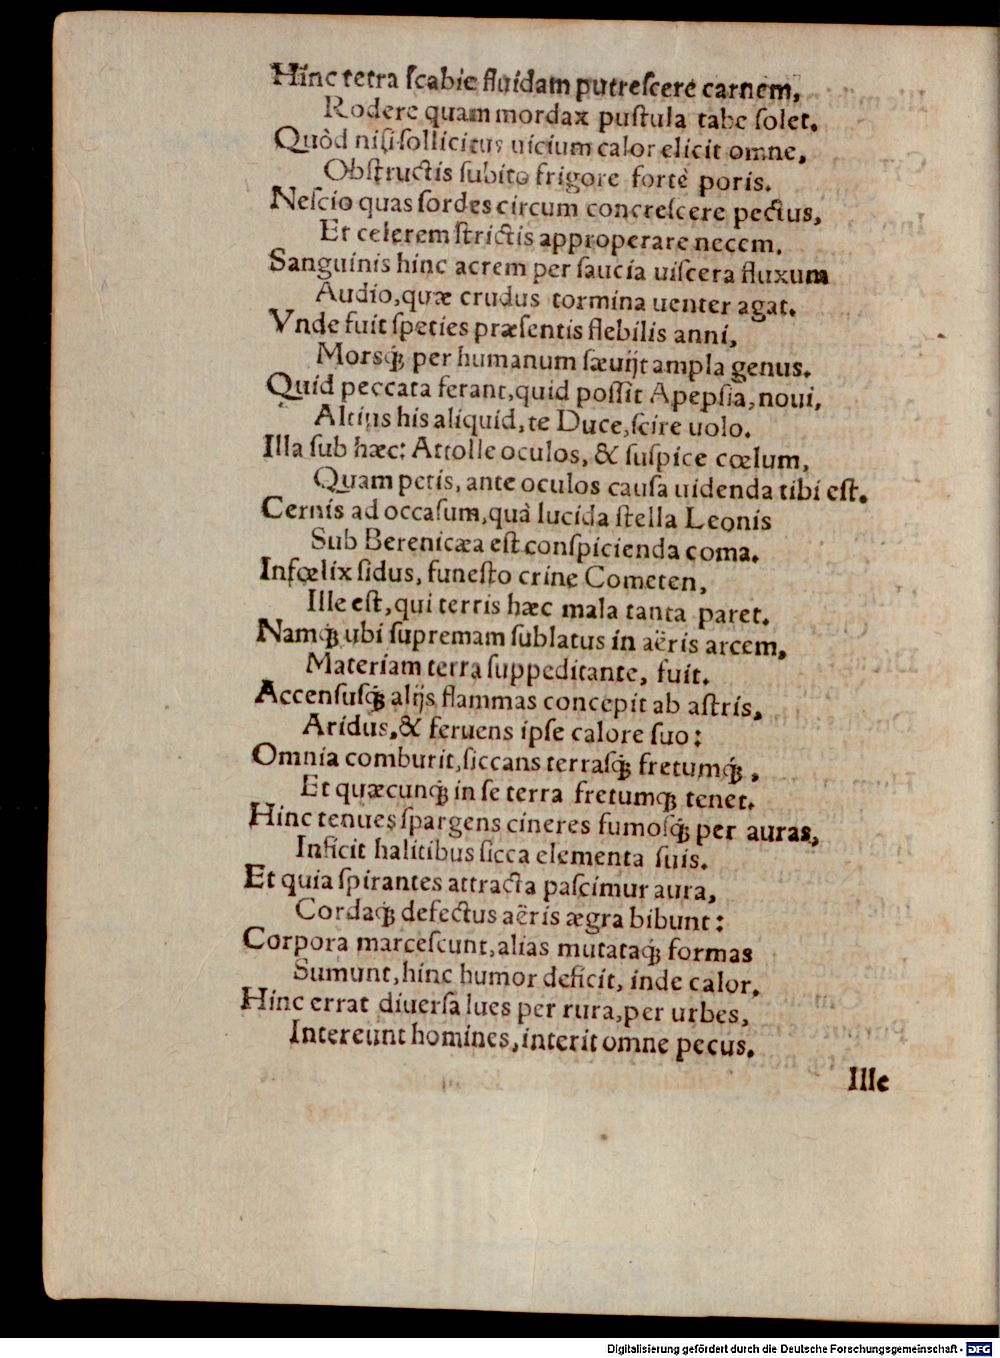 Hinc tetra ſcabie fluidam putreſcere carnem,
Rodere quam mordax puſtula tabe ſolet.
Quòd niſi ſollicitus uicium calor elicit omne,
Obſtructis ſubito frigore fortè poris.
Neſcio quas ſordes circum concreſcere pectus,
Et celerem ſtrictis approperare necem.
Sanguinis hinc acrem per ſaucia uiſcera fluxum
Audio, quæ crudus tormina uenter agat.
Vnde fuit ſpeties præſentis flebilis anni,
Morsq́; per humanum ſæuijt ampla genus.
Quid peccata ferant, quid poſſit Apepſia, noui,
Altius his aliquid, te Duce, ſcire uolo.
Illa ſub hæc: Attolle oculos, & ſuſpice cœlum,
Quam petis, ante oculos cauſa uidenda tibi eſt.
Cernis ad occaſum, quà lucida ſtella Leonis
Sub Berenicæa eſt conſpicienda coma.
Infœlix ſidus, funeſto crine Cometen,
Ille eſt, qui terris hæc mala tanta paret.
Namq́; ubi ſupremam ſublatus in aëris arcem,
Materiam terra ſuppeditante, fuit.
Accenſusq́; alijs flammas concepit ab aſtris,
Aridus, & feruens ipſe calore ſuo:
Omnia comburit, ſiccans terrasq́; fretumq́;,
Et quæcunq́; in ſe terra fretumq́; tenet.
Hinc tenues ſpargens cineres fumosq́; per auras,
Inficit halitibus ſicca elementa ſuis.
Et quia ſpirantes attracta paſcimur aura,
Cordaq́; defectus aëris ægra bibunt:
Corpora marceſcunt, alias mutataq́; formas
Sumunt, hinc humor deficit, inde calor.
Hinc errat diuerſa lues per rura, per urbes,
Intereunt homines, interit omne pecus.
Ille
Digitalisierung gefördert durch die Deutsche Forschungsgemeinschaft - DFG